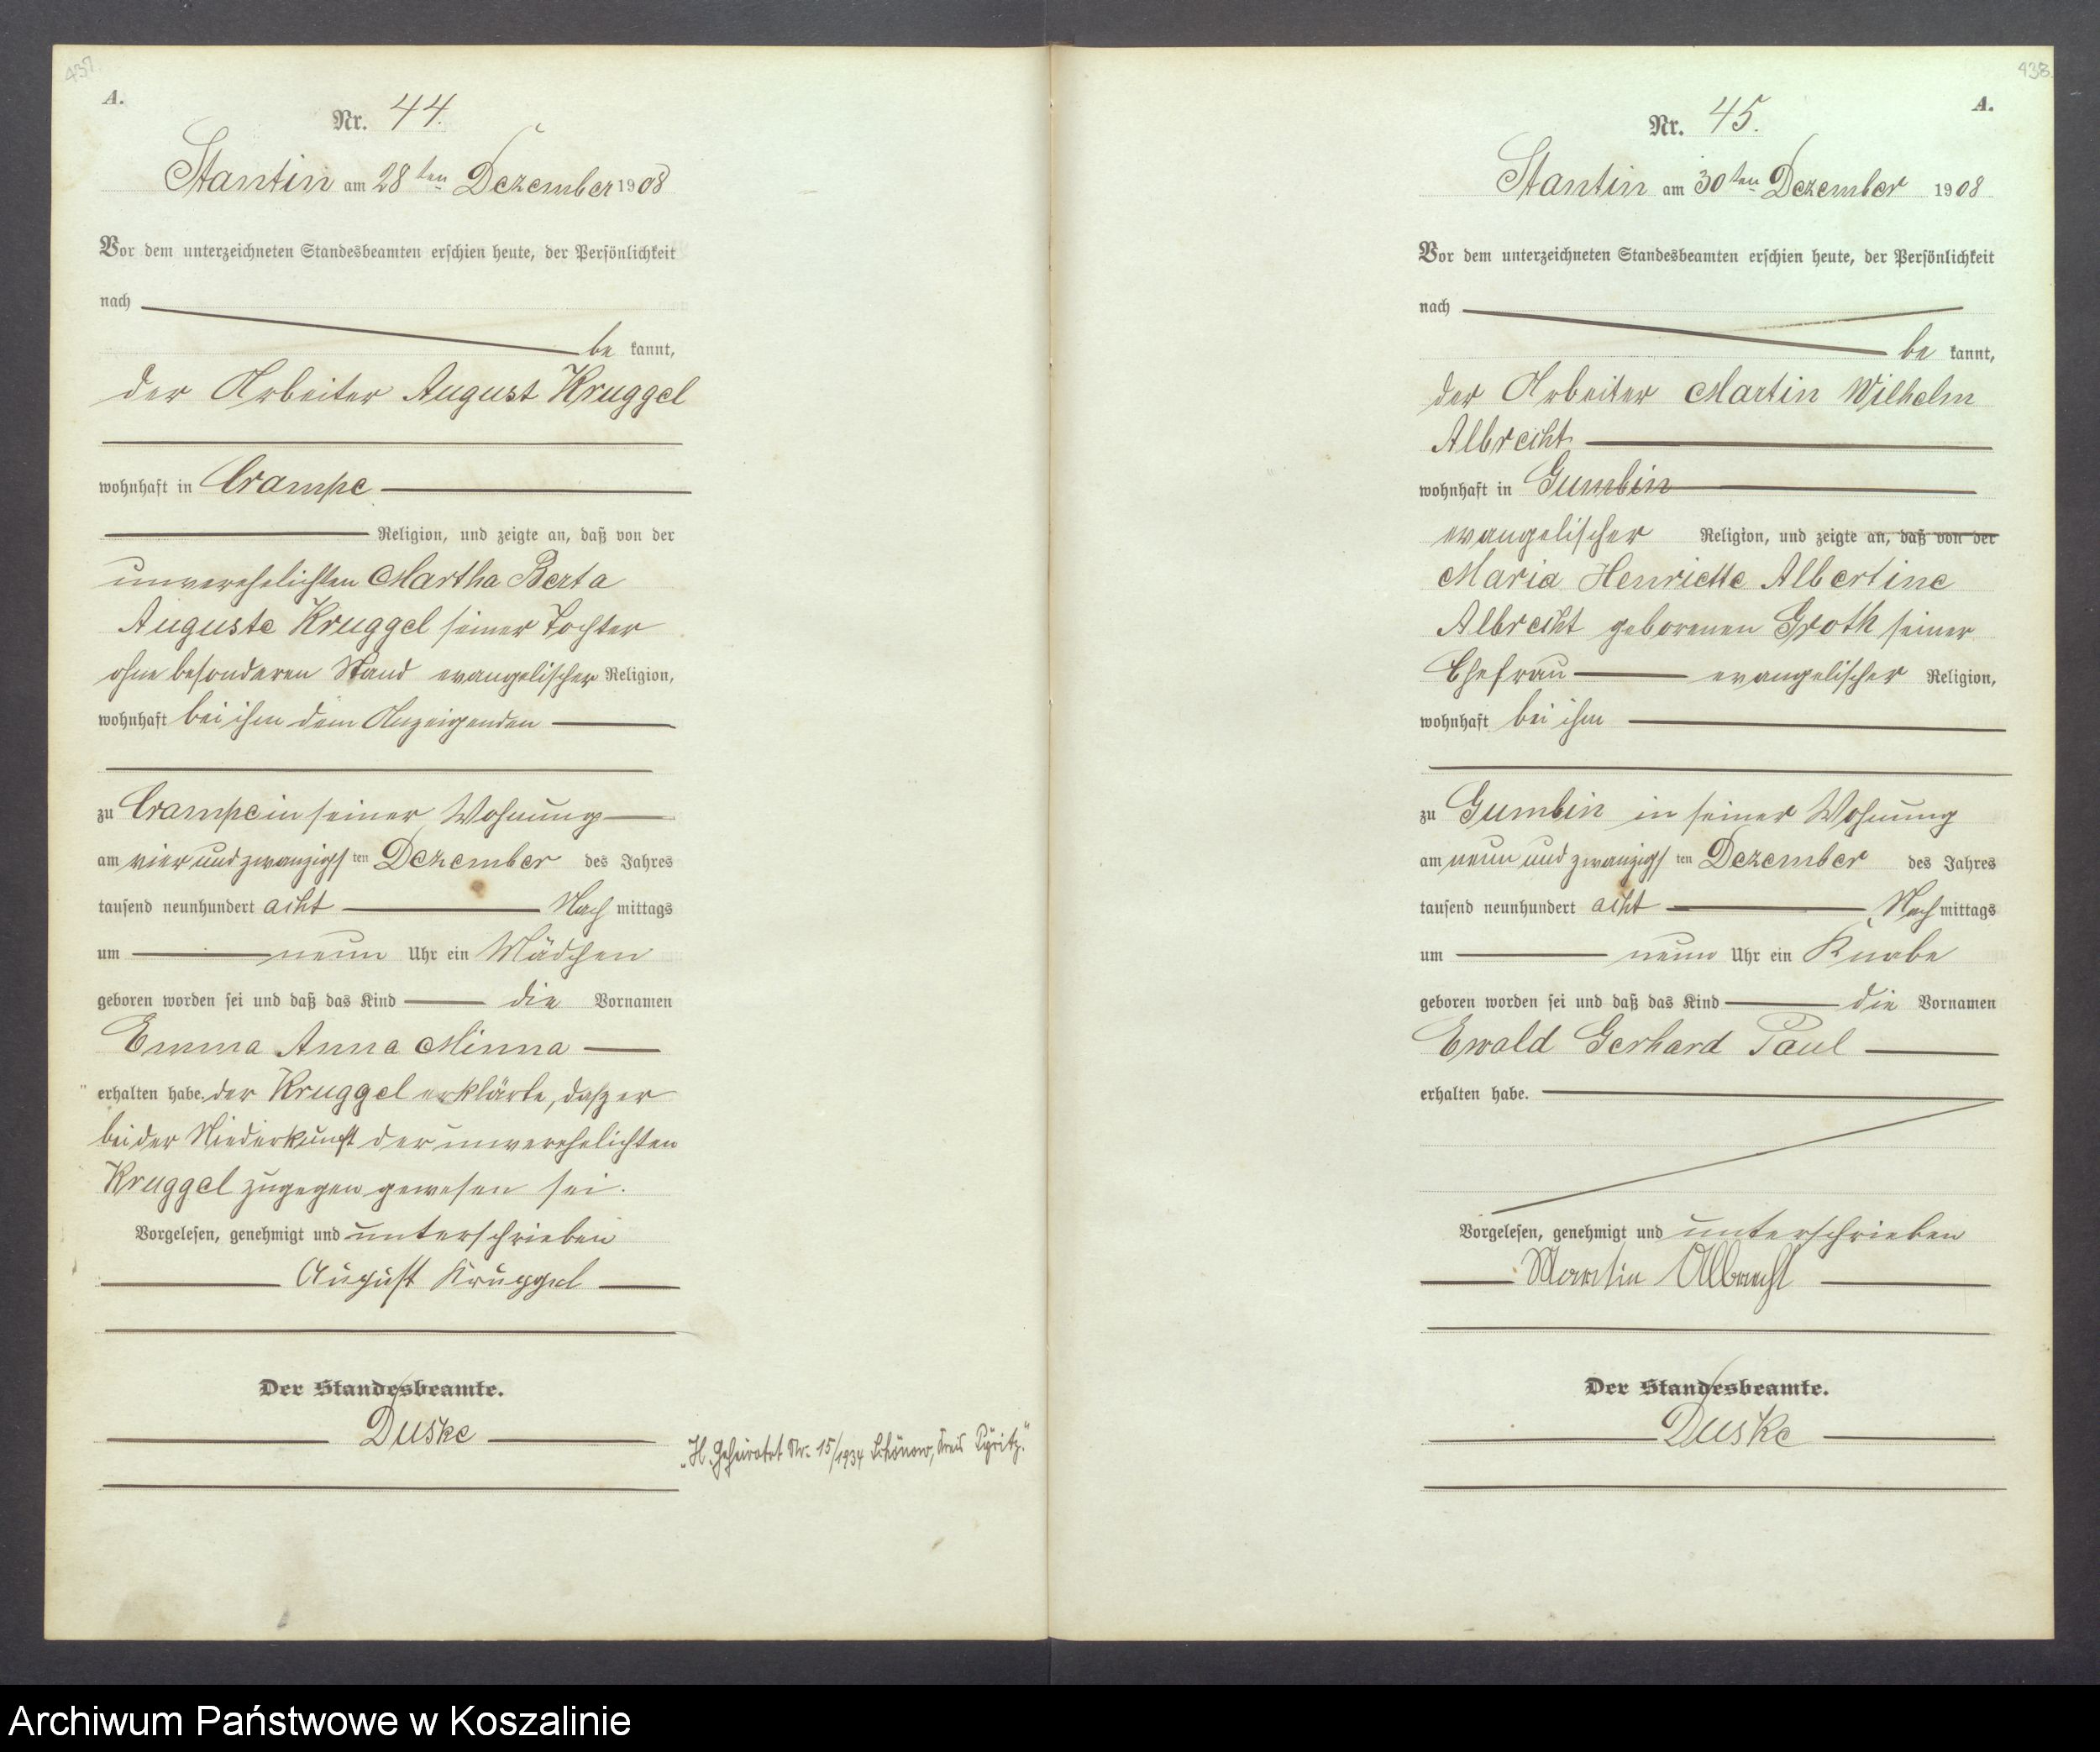 437.
A.
Nr. 44.
Stantin am 28ten Dezember 1908
Vor dem unterzeichneten Standesbeamten erschien heute, der Persönlichkeit
nach
be kannt,
der Arbeiter August Kruggel
wohnhaft in Crampe
Religion, und zeigte an, daß von der
unverehelichten Martha Berta
Auguste Kruggel seiner Tochter
ohne besonderen Stand evangelischer Religion,
wohnhaft bei ihm dem Anzeigenden
zu Crampe in seiner Wohnung
am vier und zwanzigsten Dezember des Jahres
tausend neunhundert acht Nach mittags
um neun Uhr ein Mädchen
geboren worden sei und daß das Kind die Vornamen
Emma Anna Minna
erhalten habe. der Kruggel erklärte, daß er
bei der Niederkunft der unverehelichten
Kruggel zugegen gewesen sei.
Vorgelesen, genehmigt und unterschrieben
August Kruggel
Der Standesbeamte.
Duske
"H. Geheiratet Nr. 15/1934 Schönow, Kreis Pyritz."
438.
A.
Nr. 45.
Stantin am 30ten Dezember 1908
Vor dem unterzeichneten Standesbeamten erschien heute, der Persönlichkeit
nach
be kannt,
der Arbeiter Martin Wilhelm
Albrecht
wohnhaft in Gumbin
evangelischer Religion, und zeigte an, daß von der
Maria Henriette Albertine
Albrecht geborenen Groth seiner
Ehefrau evangelischer Religion,
wohnhaft bei ihm
zu Gumbin in seiner Wohnung
am neun und zwanzigsten Dezember des Jahres
tausend neunhundert acht Nach mittags
um neun Uhr ein Knabe
geboren worden sei und daß das Kind die Vornamen
Ewald Gerhard Paul
erhalten habe.
Vorgelesen, genehmigt und unterschrieben
Martin Albrecht
Der Standesbeamte.
Duske
Archiwum Państwowe w Koszalinie